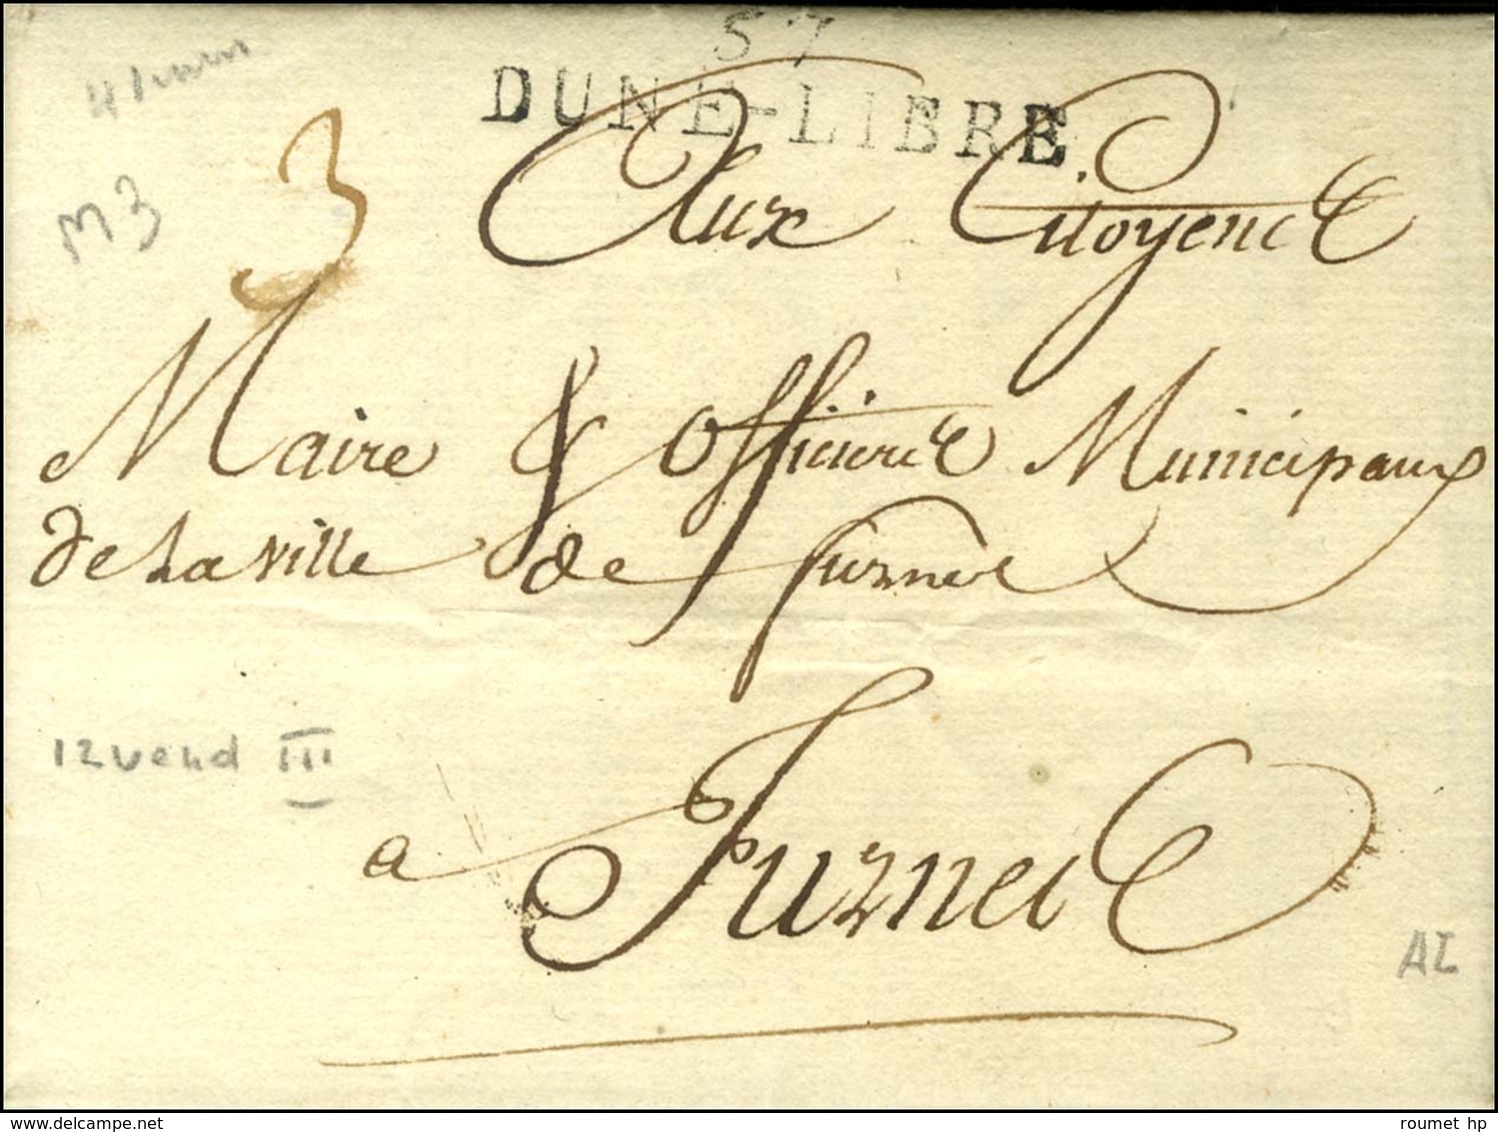 57
DUNE-LIBRE
3
M3
Aux Citoyens
Maire & Officiers Municipaux
de La ville de furnes
12 vend III
a furnes
AI
www.delcampe.net
roumet hp